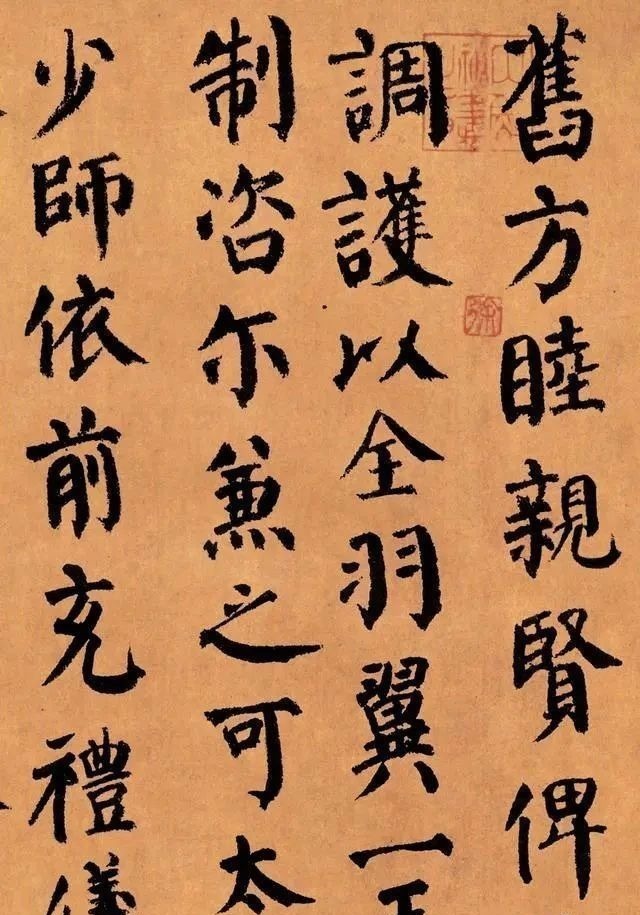 舊方睦親賢俾
調護以全羽翼一
制咨尔兼之可太
少師依前充禮儀